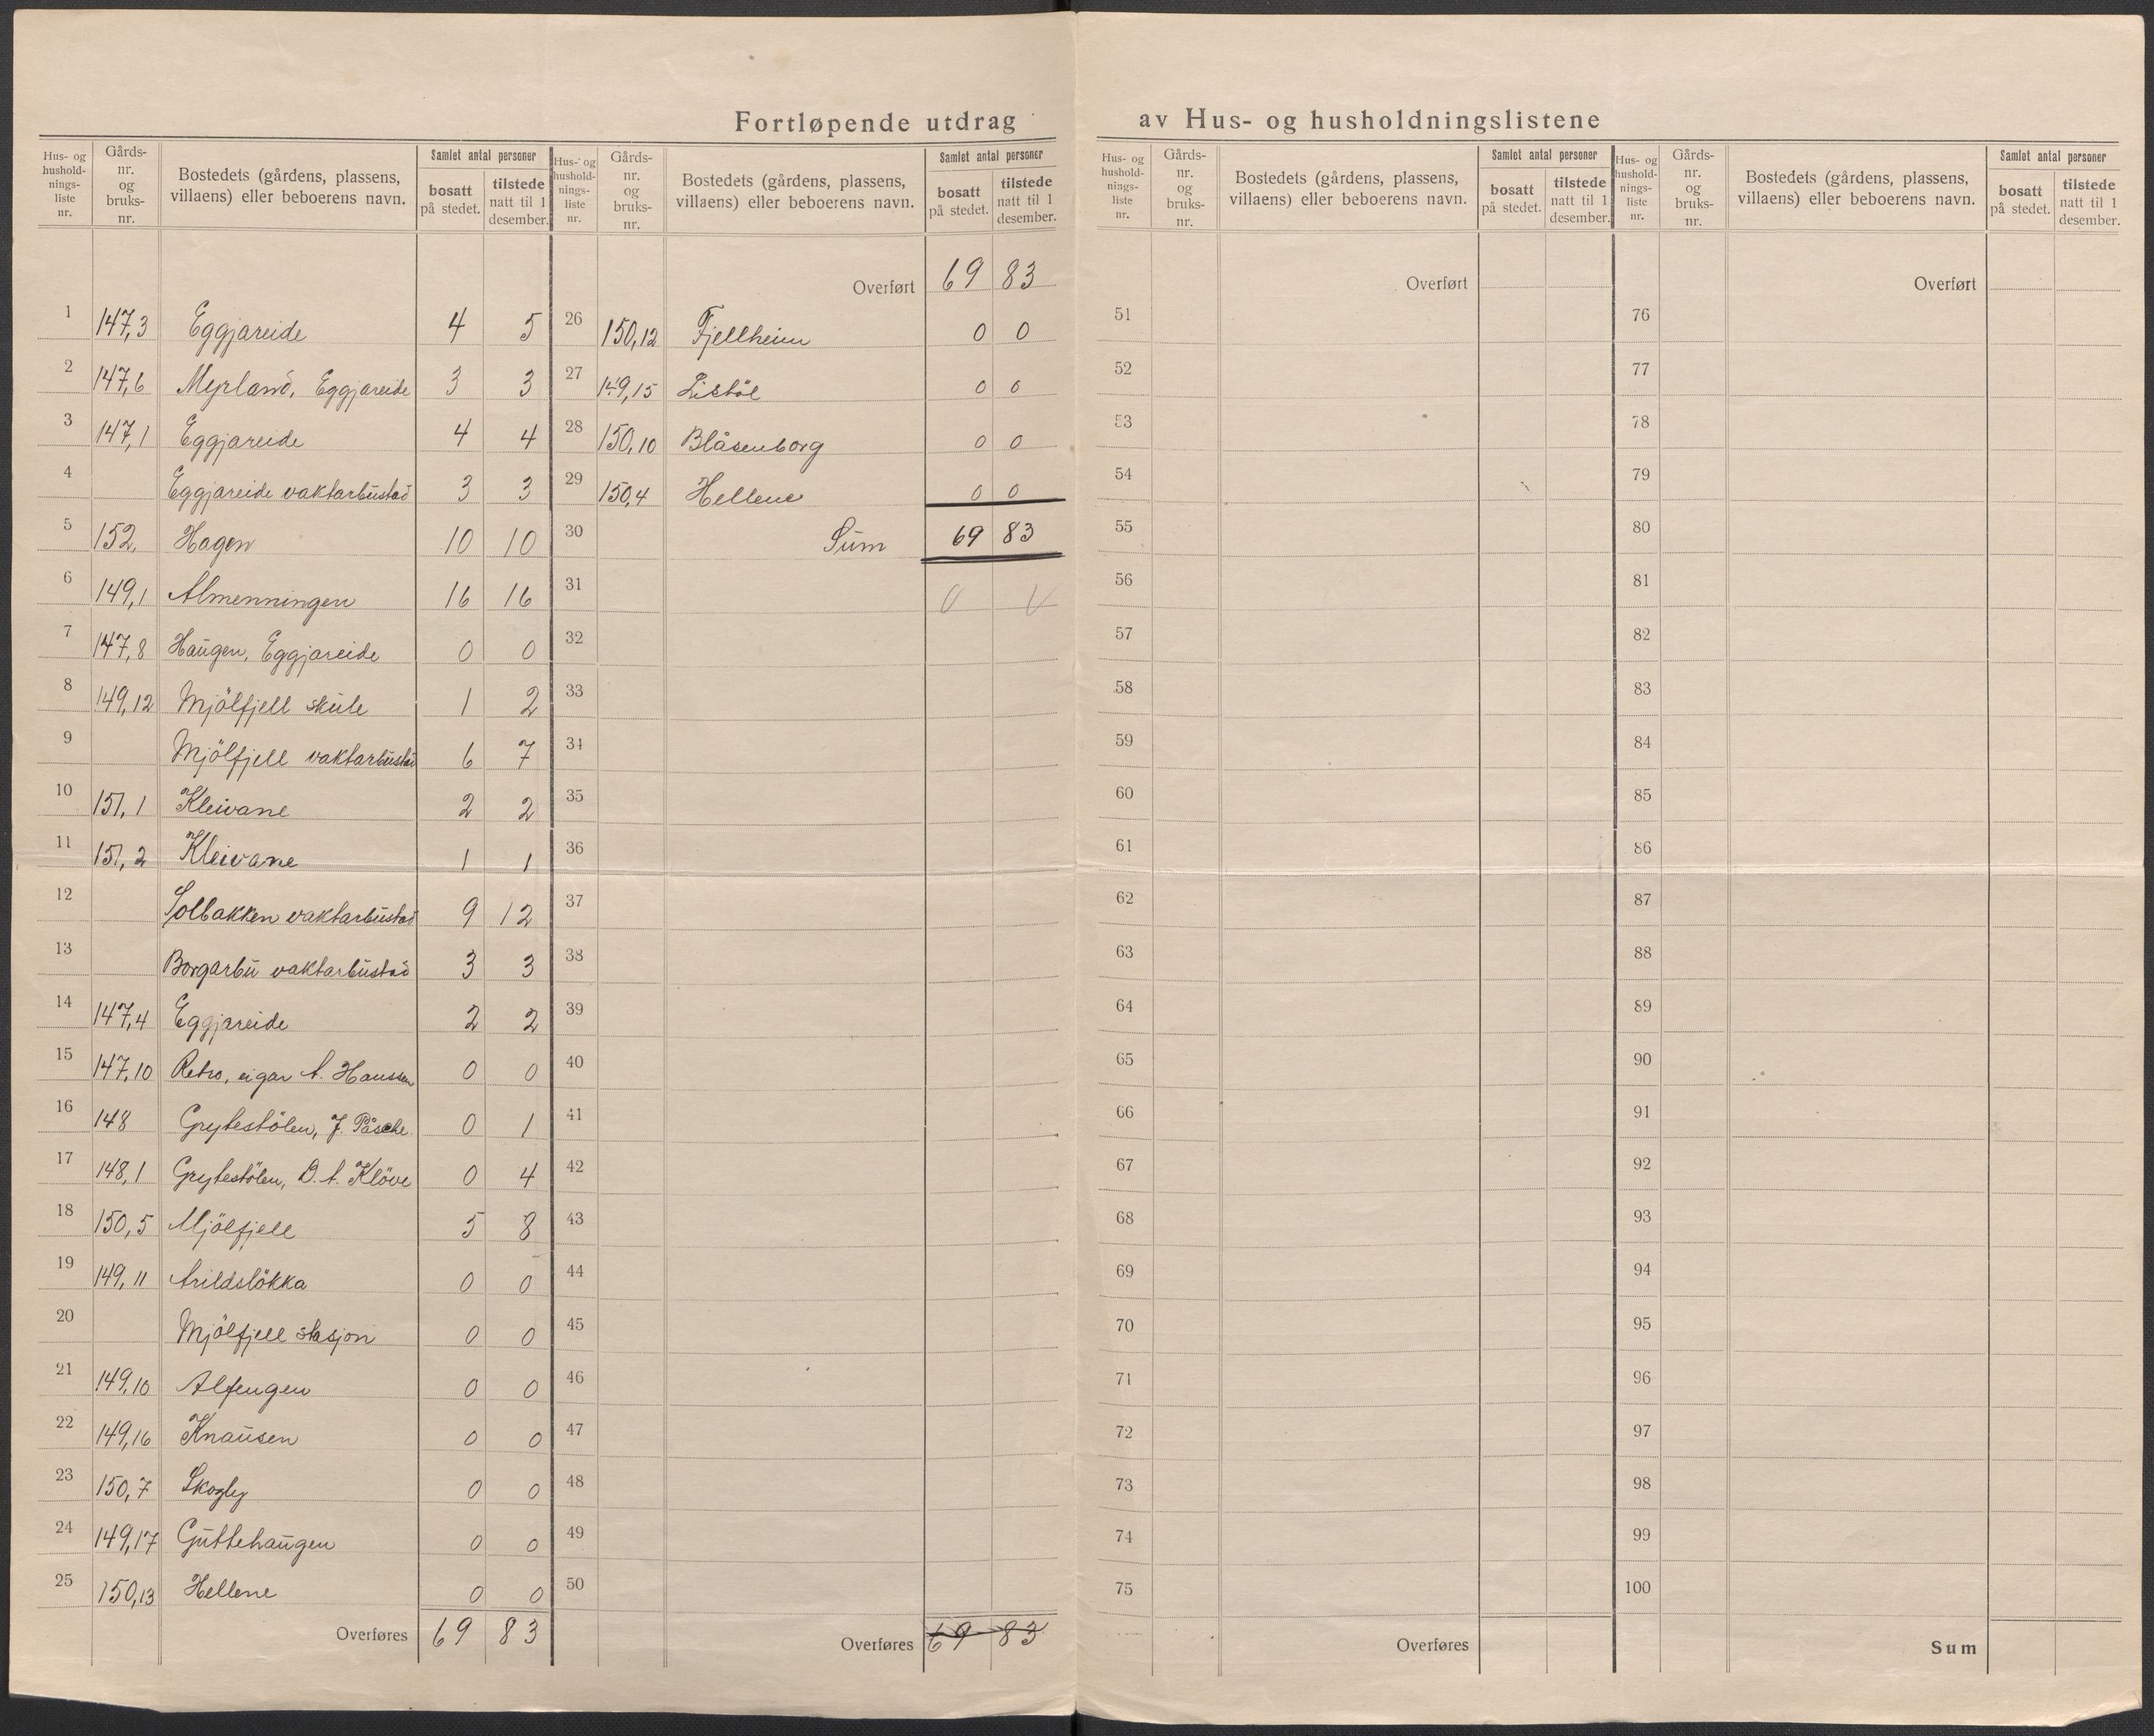 Fortløpende utdrag av Hus- og husholdningslistene
Hus- og hushold- nings- liste nr. Gårds- nr. og bruks- nr. Bostedets (gårdens, plassens, villaens) eller beboerens navn. Samlet antal personer bosatt på stedet. tilstede natt til 1 desember.
1 147,3 Eggjareide 4 5
2 147,6 Myrland, Eggjareide 3 3
3 147,1 Eggjareide 4 4
4 Eggjareide vaktarbustad 3 3
5 152, Hagen 10 10
6 149,1 Almenningen 16 16
7 147,8 Haugen, Eggjareide 0 0
8 149,12 Mjölfjell skule 1 2
9 Mjölfjell vaktarbustad 6 7
10 151,1 Kleivane 2 2
11 151,2 Kleivane 1 1
12 Solbakken vaktarbustad 9 12
13 Borgarbu vaktarbustad 3 3
14 147,4 Eggjareide 2 2
15 147,10 Retro, eigar A. Hanssen 0 0
16 148 Grytestölen, J. Påsche 0 1
17 148,1 Grytestölen, O. A. Klöve 0 4
18 150,5 Mjölfjell 5 8
19 149,11 Arildslökka 0 0
20 Mjölfjell stasjon 0 0
21 149,10 Alfengen 0 0
22 149,16 Knausen 0 0
23 150,7 Skogly 0 0
24 149,17 Guttehaugen 0 0
25 150,13 Hellene 0 0
Overføres 69 83
Hus- og hushold- nings- liste nr. Gårds- nr. og bruks- nr. Bostedets (gårdens, plassens, villaens) eller beboerens navn. Samlet antal personer bosatt på stedet. tilstede natt til 1 desember.
Overført 69 83
26 150,12 Fjellheim 0 0
27 149,15 Listöl 0 0
28 150,10 Blåsenborg 0 0
29 150,4 Hellene 0 0
30 Sum 69 83
31
32
33
34
35
36
37
38
39
40
41
42
43
44
45
46
47
48
49
50
Overføres 69 83
Hus- og hushold- nings- liste nr. Gårds- nr. og bruks- nr. Bostedets (gårdens, plassens, villaens) eller beboerens navn. Samlet antal personer bosatt på stedet. tilstede natt til 1 desember.
Overført
51
52
53
54
55
56
57
58
59
60
61
62
63
64
65
66
67
68
69
70
71
72
73
74
75
Overføres
Hus- og hushold- nings- liste nr. Gårds- nr. og bruks- nr. Bostedets (gårdens, plassens, villaens) eller beboerens navn. Samlet antal personer bosatt på stedet. tilstede natt til 1 desember.
Overført
76
77
78
79
80
81
82
83
84
85
86
87
88
89
90
91
92
93
94
95
96
97
98
99
100
Sum